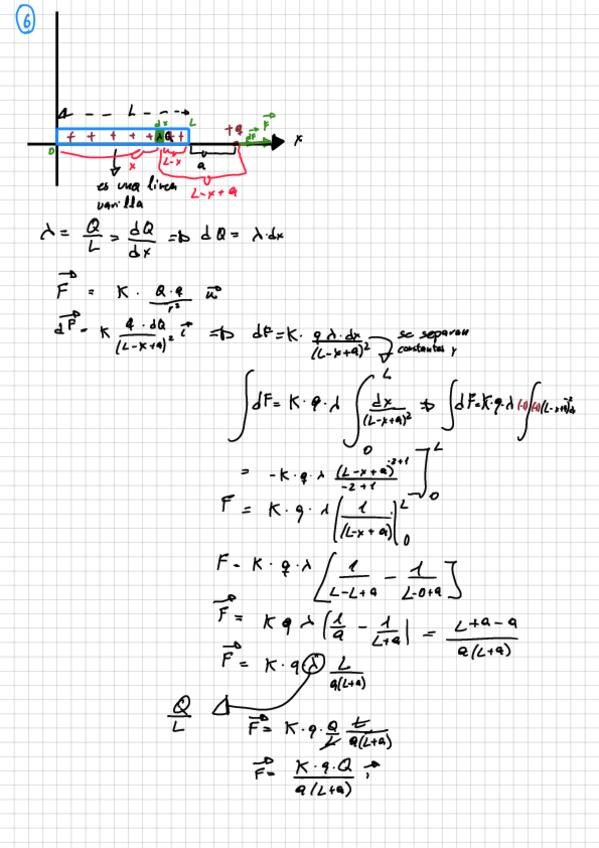 6
L
dx L +q dF F
+ + + + + λ Q + +
0 x L-x a x
es una linea L-x+a
varilla
λ = Q/L = dQ/dx ⇒ dQ = λ·dx
F = K · Q·q/r² u
dF = K q·dQ/(L-x+a)² i ⇒ dF = K · q λ·dx/(L-x+a)² se separan
constantes y
∫dF = K·q·λ ∫₀ᴸ dx/(L-x+a)² ⇒ ∫dF = K·q·λ (-1)∫(-1)(L-x+a)⁻² dx
= -K·q·λ (L-x+a)⁻²⁺¹/-2+1 ]₀ᴸ
F = K·q·λ [1/(L-x+a)]₀ᴸ
F = K·q·λ [1/L-L+a - 1/L-0+a]
F = K q λ (1/a - 1/L+a) = L+a-a/a(L+a)
F = K·q λ L/a(L+a)
Q/L
F = K·q·Q/L L/a(L+a)
F = K·q·Q/a(L+a) i